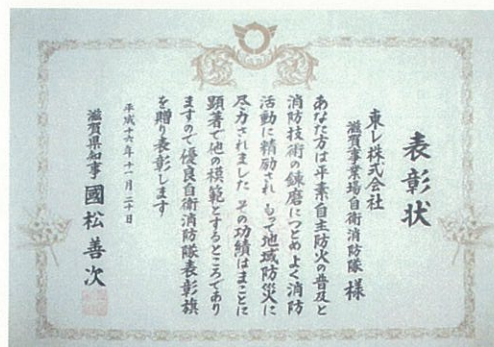 表彰状
東レ株式会社
滋賀事業場自衛消防隊 様
あなた方は平素自主防火の普及と
消防技術の錬磨につとめよく消防
活動に精励され もって地域防災に
尽力されました その功績はまことに
顕著で他の模範とするところであり
ますので優良自衛消防隊表彰旗
を贈り表彰します
平成十六年十一月二十日
滋賀県知事 國松善次